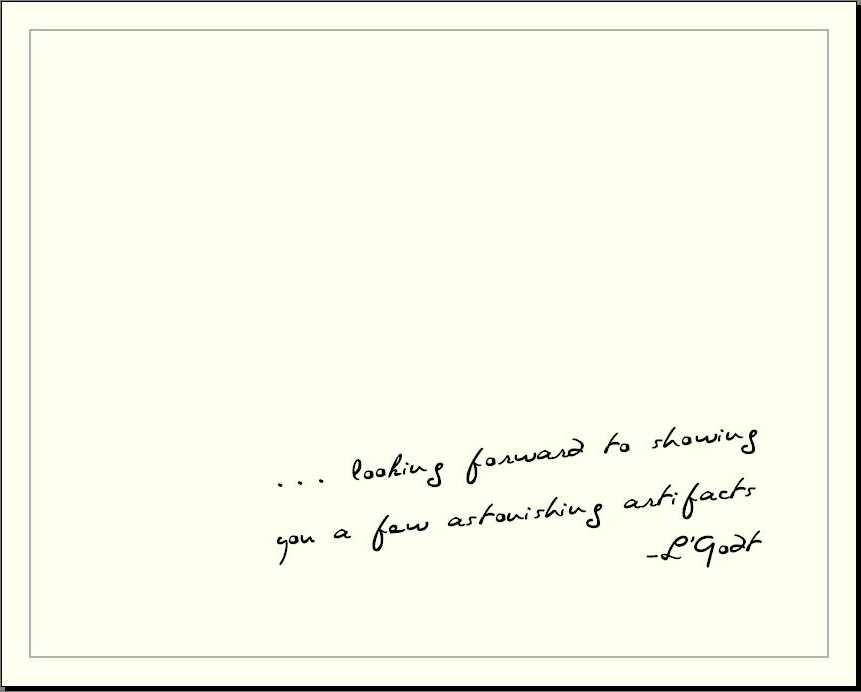 ... looking forward to showing
you a few astonishing artifacts
-L'Godt